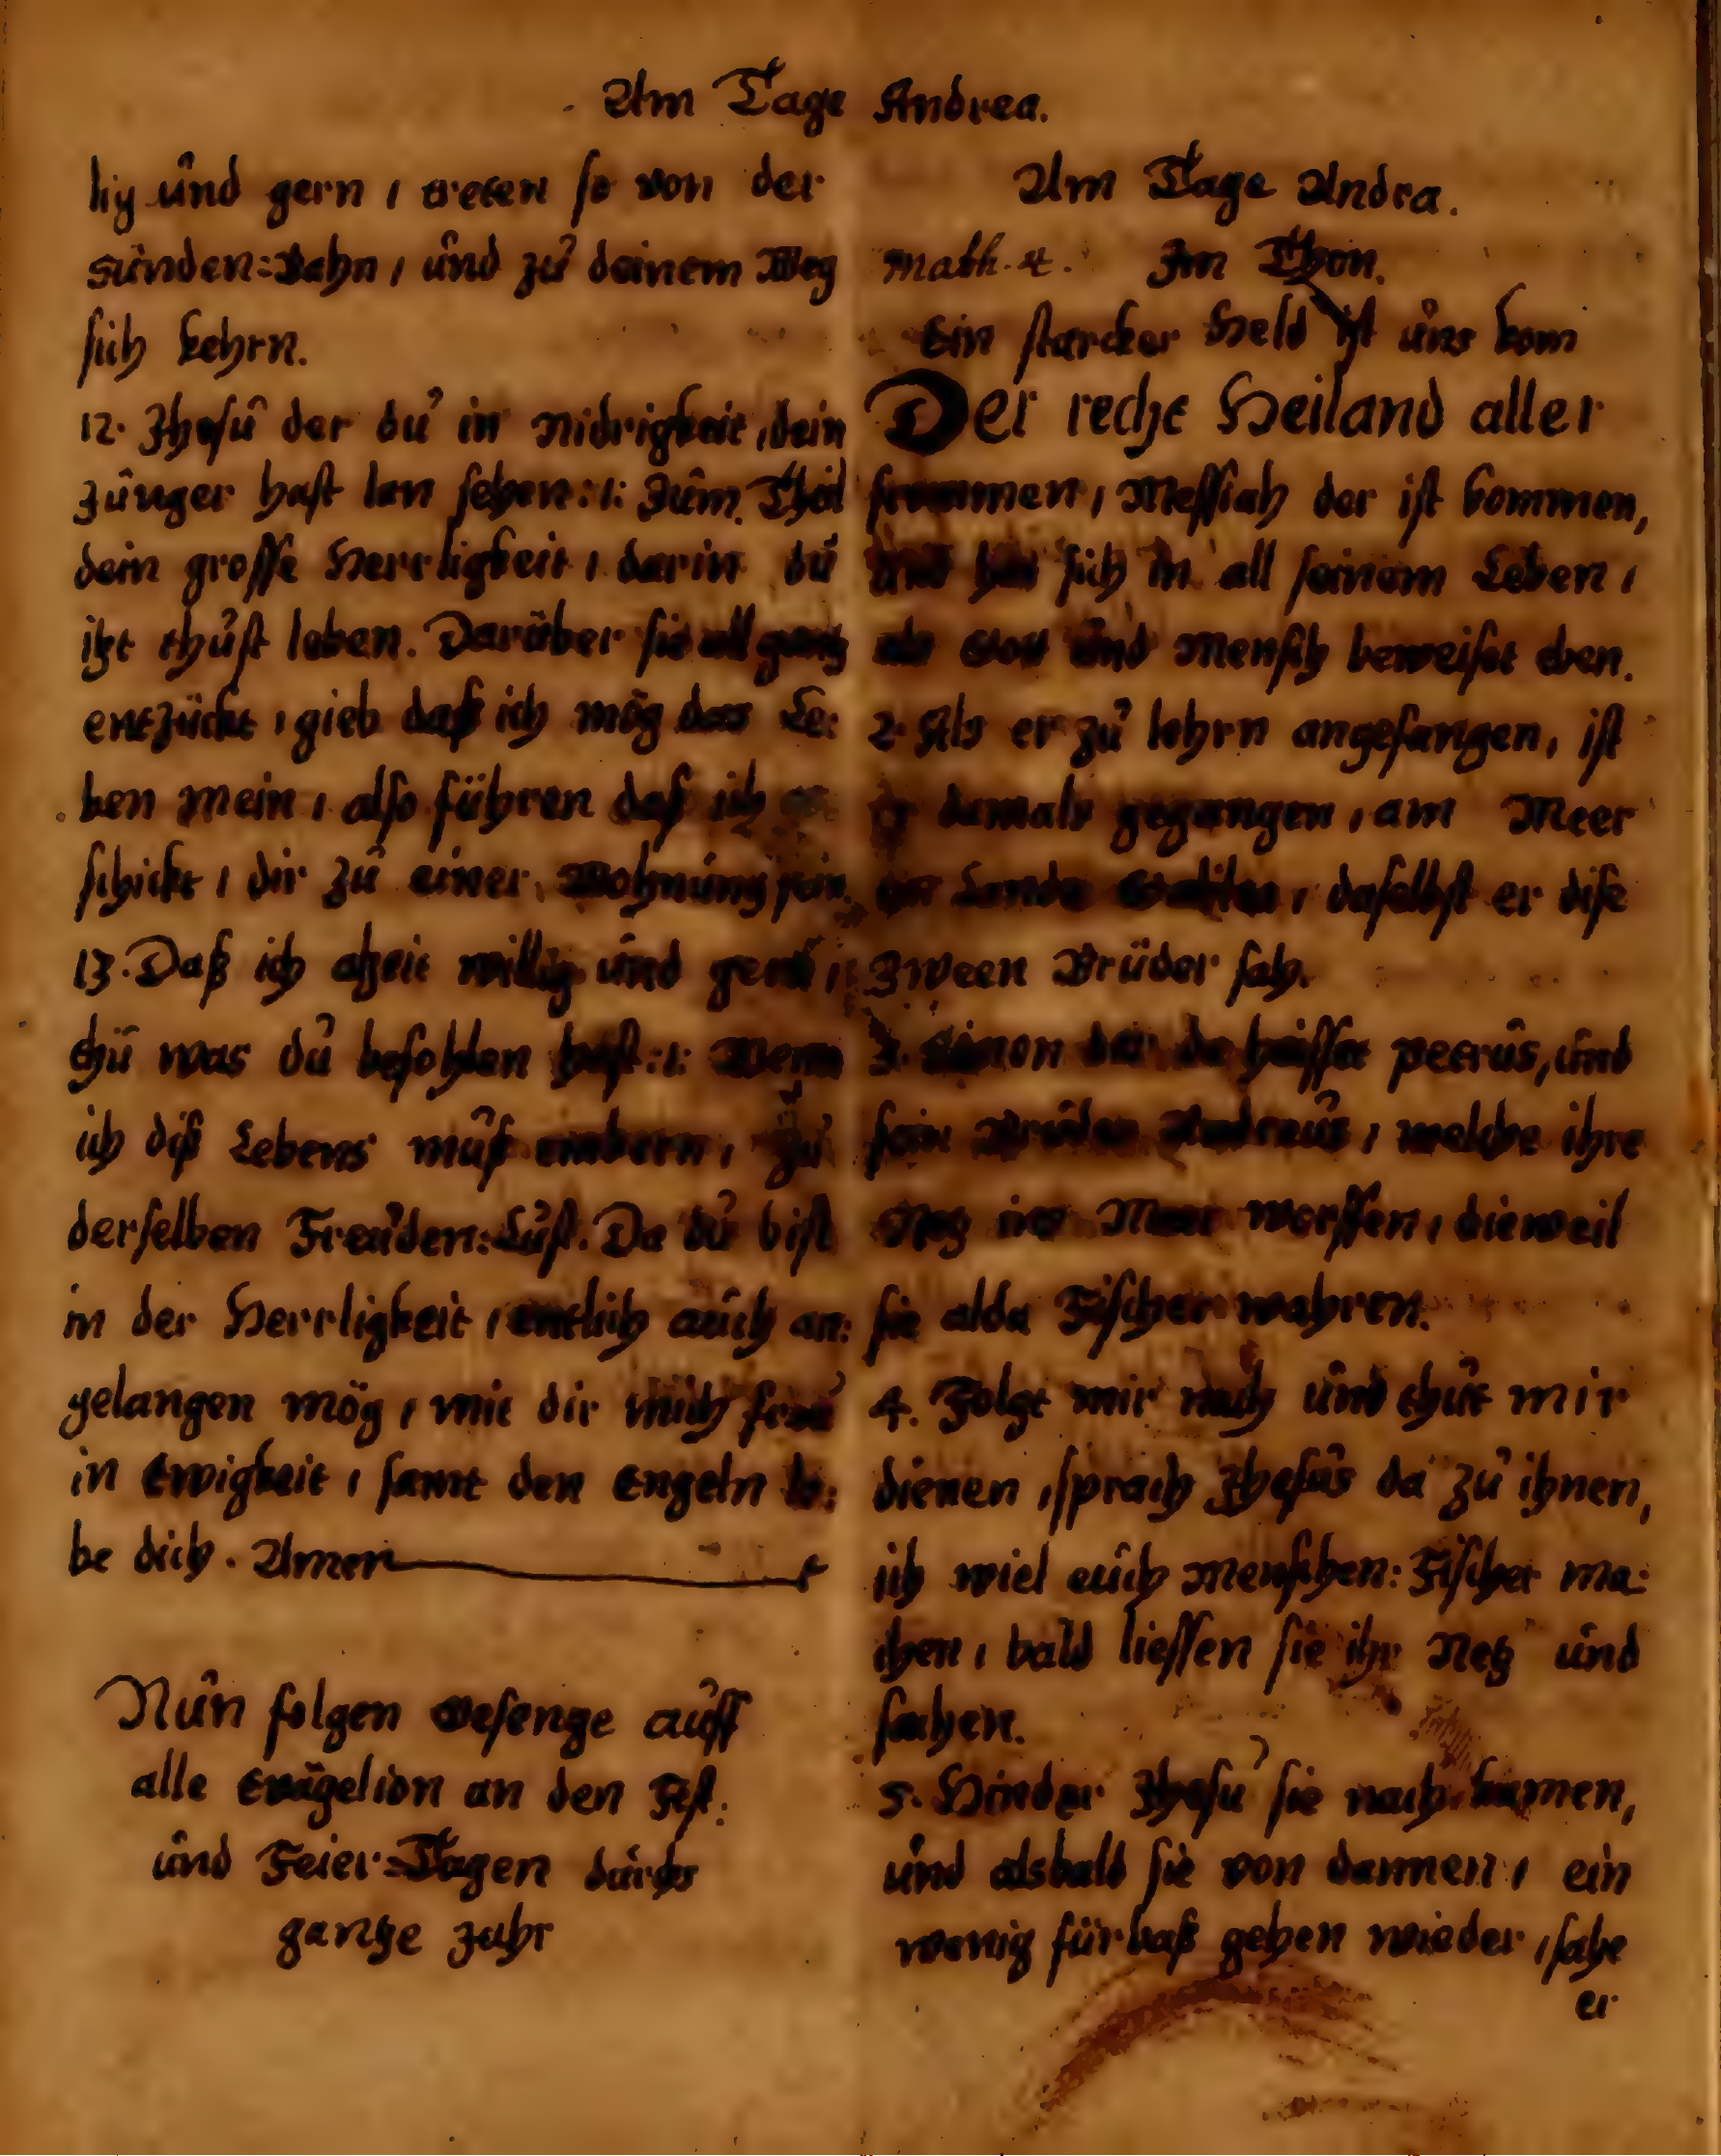 Am Tage Andrea.
lig und gern / treten so von der
sünden=Bahn / und zu deinem Weg
sich kehrn.
12. Jhesu der du in Nidrigkeit / dein
Jünger hast lan sehen :/: Zum Theil
dein grosse Herrligkeit / darin du
itzt thust leben. Darüber sie all gantz
entzückt / gieb daß ich mög das Le=
ben mein / also führen daß ich ge=
schickt / dir zu einer Wohnung sein.
13. Daß ich alzeit willig und gern /
thu was du befohlen hast :/: Wenn
ich diß Lebens muß embern / zu
derselben Freuden=Lust. Da du bist
in der Herrligkeit / entlich auch an=
gelangen mög / mit dir mich freu
in Ewigkeit / samt den Engeln lo=
be dich. Amen
Nun folgen Gesenge auff
alle Evãgelion an den Fest=
und Feier=Tagen durchs
gantze Jahr
Am Tage Andrea.
Math. 4. Im Thon.
Ein starcker Held ist uns kom
Der recht Heiland aller
frommen / Messiah der ist kommen,
und hat sich in all seinem Leben /
als Gott und Mensch beweiset eben.
2. Als er zu lehrn angefangen, ist
er damals gegangen / am Meer
im Lande Galilea / daselbst er dise
Zween Brüder sah.
3. Simon der da heisset Petrus, und
sein Bruder Andreus / welche ihre
Netz ins Meer worffen / dieweil
sie alda Fischer wahren.
4. Folgt mir nach und thut mir
dienen / sprach Jhesus da zu ihnen,
ich wiel euch Menschen=Fischer ma=
chen / bald liessen sie ihr Netz und
sachen.
5. Hinder Jhesu sie nach kamen,
und alsbald sie von dannen / ein
wenig fürbaß gehen wieder / sahe
er